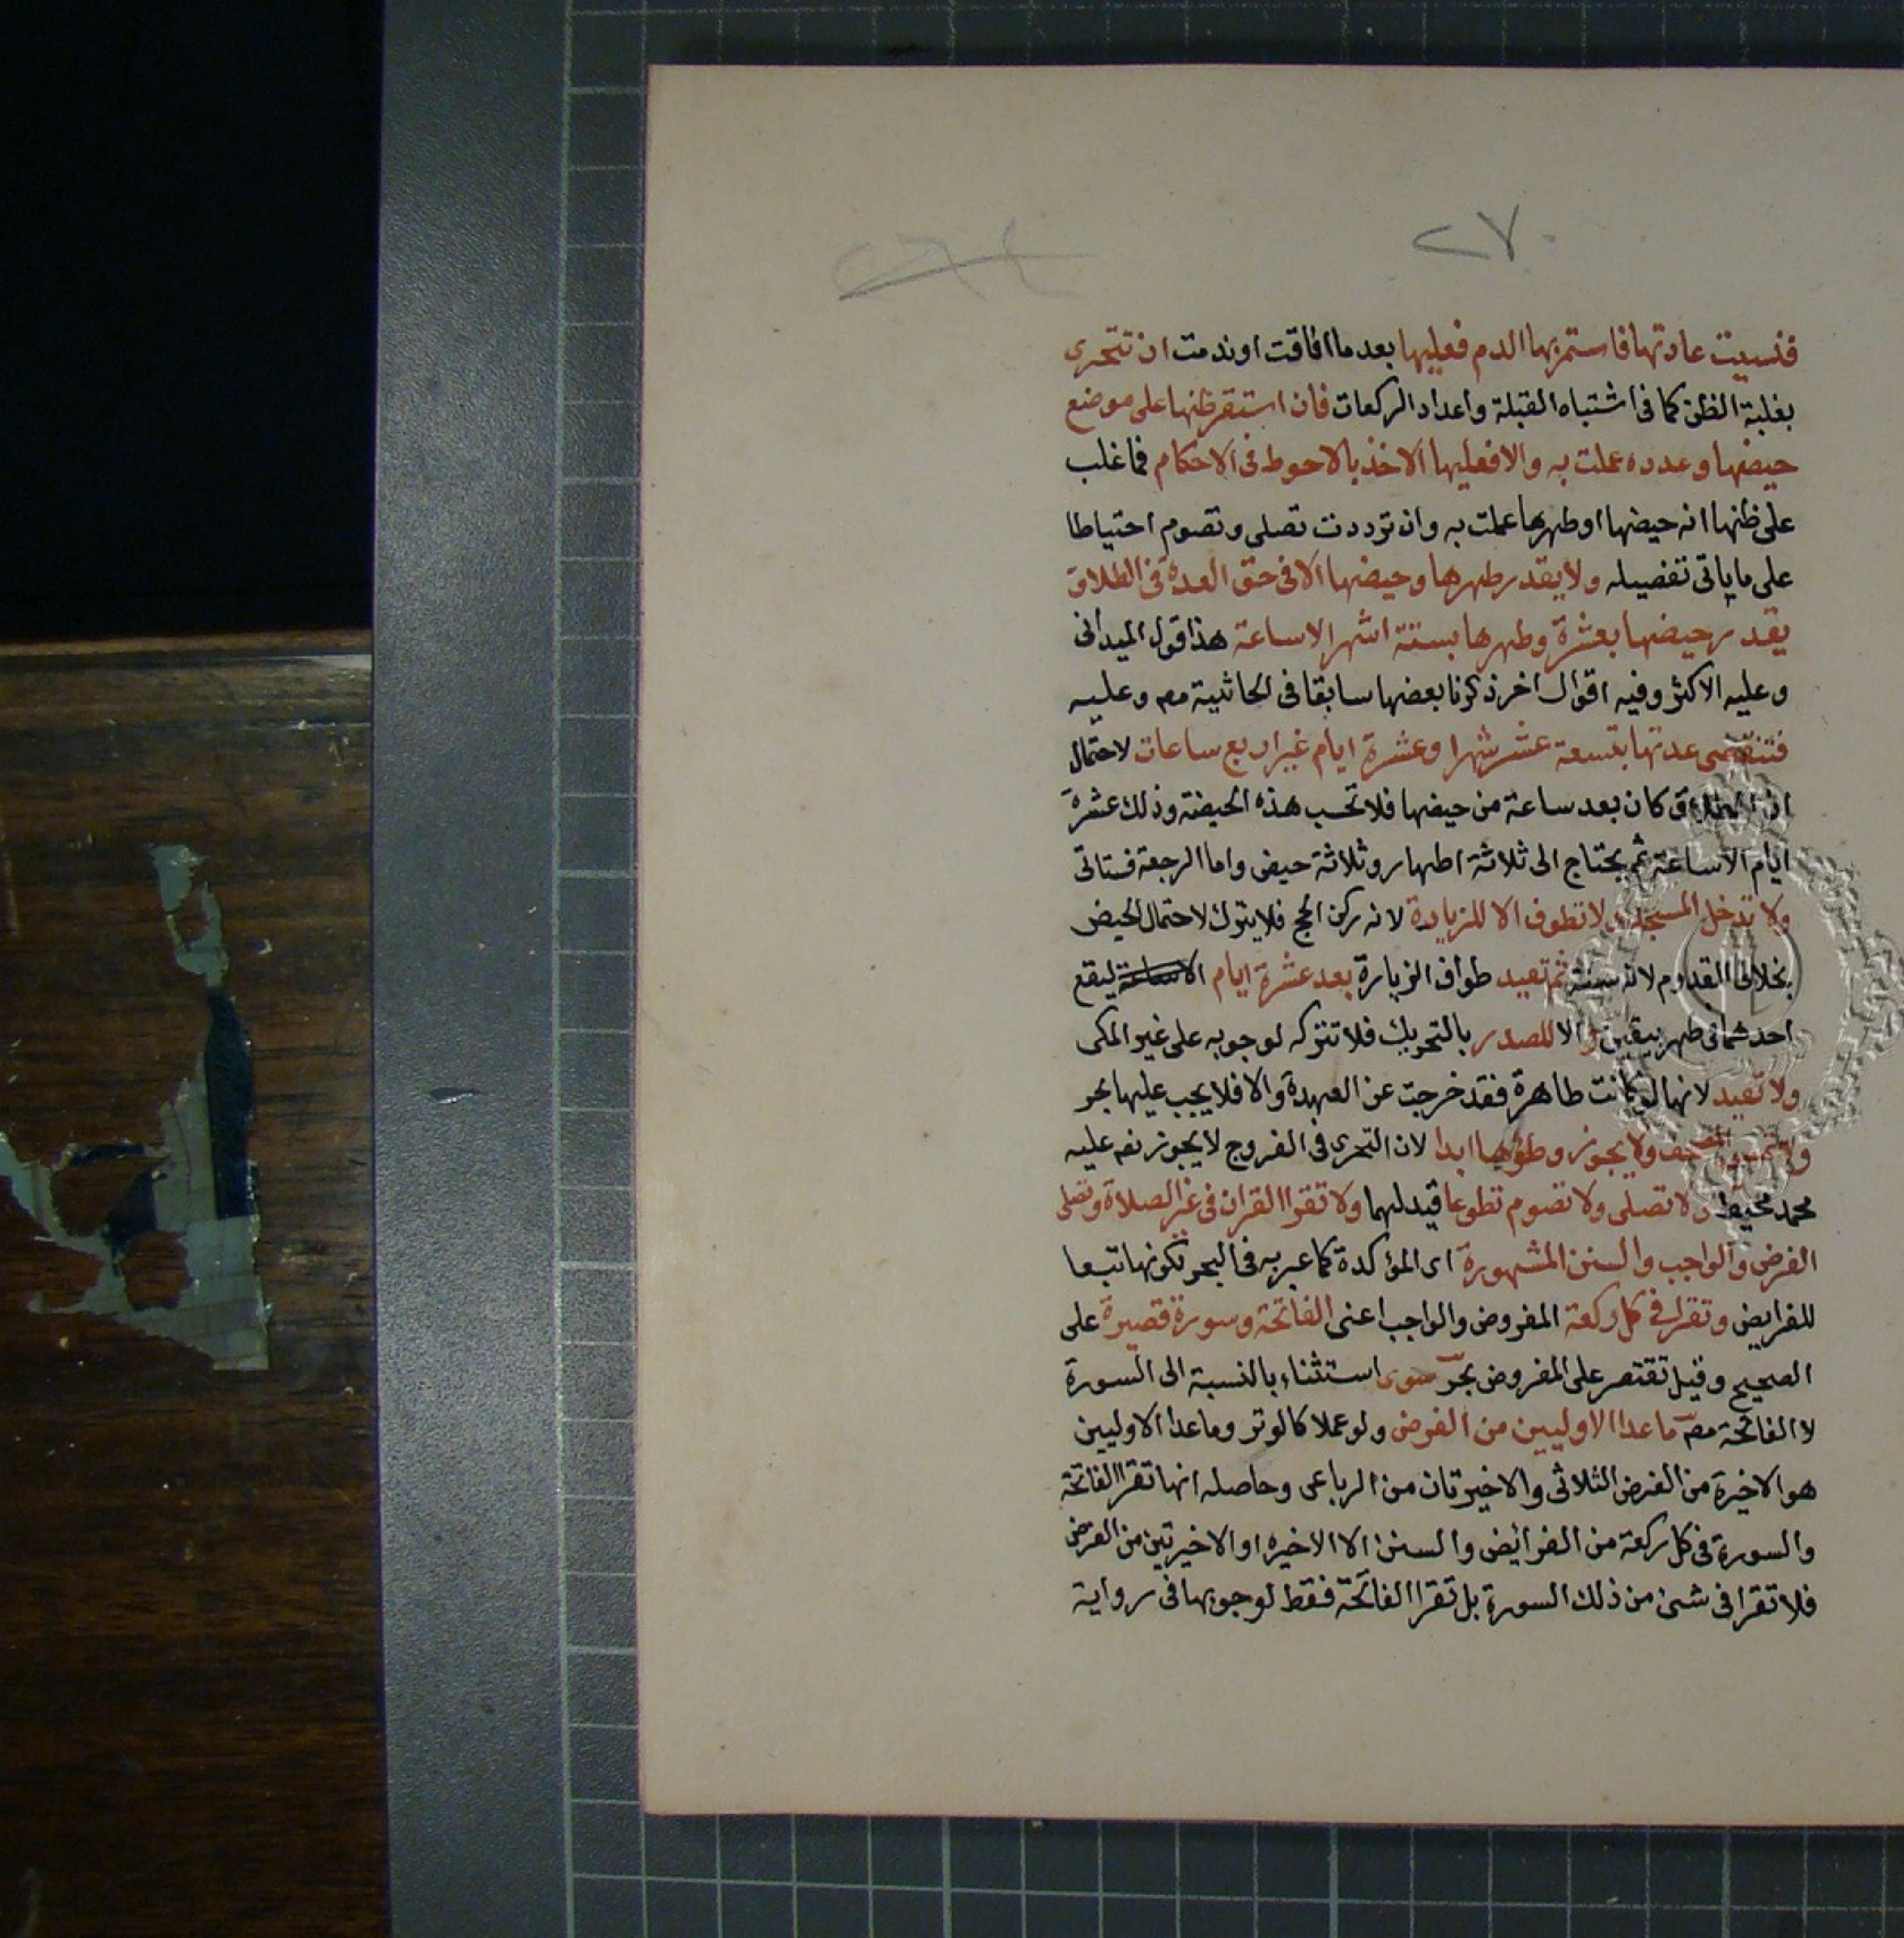 ٢٧
فنسيت عادتها فاستمر بها الدم فعليها بعد ما افاقت او ندمت ان تتحرى
بغلبة الظن كما فى اشتباه القبلة واعداد الركعات فان استقر ظنها على موضع
حيضها وعدده عملت به والا فعليها الاخذ بالاحوط فى الاحكام فما غلب
على ظنها انه حيضها او طهرها عملت به وان ترددت تصلى وتصوم احتياطا
على ما ياتى تفصيله ولا يقدر طهرها وحيضها الا فى حق العدة فى الطلاق
يقدر حيضها بعشرة وطهرها بستة اشهر الا ساعة هذا قول الميدانى
وعليه الاكثر وفيه اقوال اخر ذكرنا بعضها سابقا فى الحاشية مصه وعليه
فتنقضى عدتها بتسعة عشر شهرا وعشرة ايام غير اربع ساعات لاحتمال
ان الطلاق كان بعد ساعة من حيضها فلا تحسب هذه الحيضة وذلك عشرة
ايام الا ساعة ثم يحتاج الى ثلاثة اطهار وثلاثة حيض واما الرجعة فستاتى
ولا تدخل المسجد ولا تطوف الا للزيارة لانه ركن الحج فلا يترك لاحتمال الحيض
بخلاف القدوم لانه سنة ثم تعيد طواف الزيارة بعد عشرة ايام الا ساعة ليقع
احدهما فى طهر بيقين والا للصدر بالتحريك فلا تتركه لوجوبه على غير المكى
ولا تعيد لانها لو كانت طاهرة فقد خرجت عن العهدة والا فلا يجب عليها بحر
ولا تمس المصحف ولا يجوز وطؤها ابدا لان التحرى فى الفروج لا يجوز نص عليه
محمد محيط ولا تصلى ولا تصوم تطوعا قيد لهما ولا تقرا القران فى غير الصلاة وتصلى
الفرض والواجب والسنن المشهورة اى المؤكدة كما عبر به فى البحر لكونها تبعا
للفرايض وتقرا فى كل ركعة المفروض والواجب اعنى الفاتحة وسورة قصيرة على
الصحيح وقيل تقتصر على المفروض بحر سوى استثناء بالنسبة الى السورة
لا الفاتحة مصه ما عدا الاوليين من الفرض ولو عملا كالوتر وما عدا الاوليين
هو الاخيرة من الفرض الثلاثى والاخيرتان من الرباعى وحاصله انها تقرا الفاتحة
والسورة فى كل ركعة من الفرائض والسنن الا الاخيره او الاخيرتين من الفرض
فلا تقرا فى شئ من ذلك السورة بل تقرا الفاتحة فقط لوجوبها فى رواية